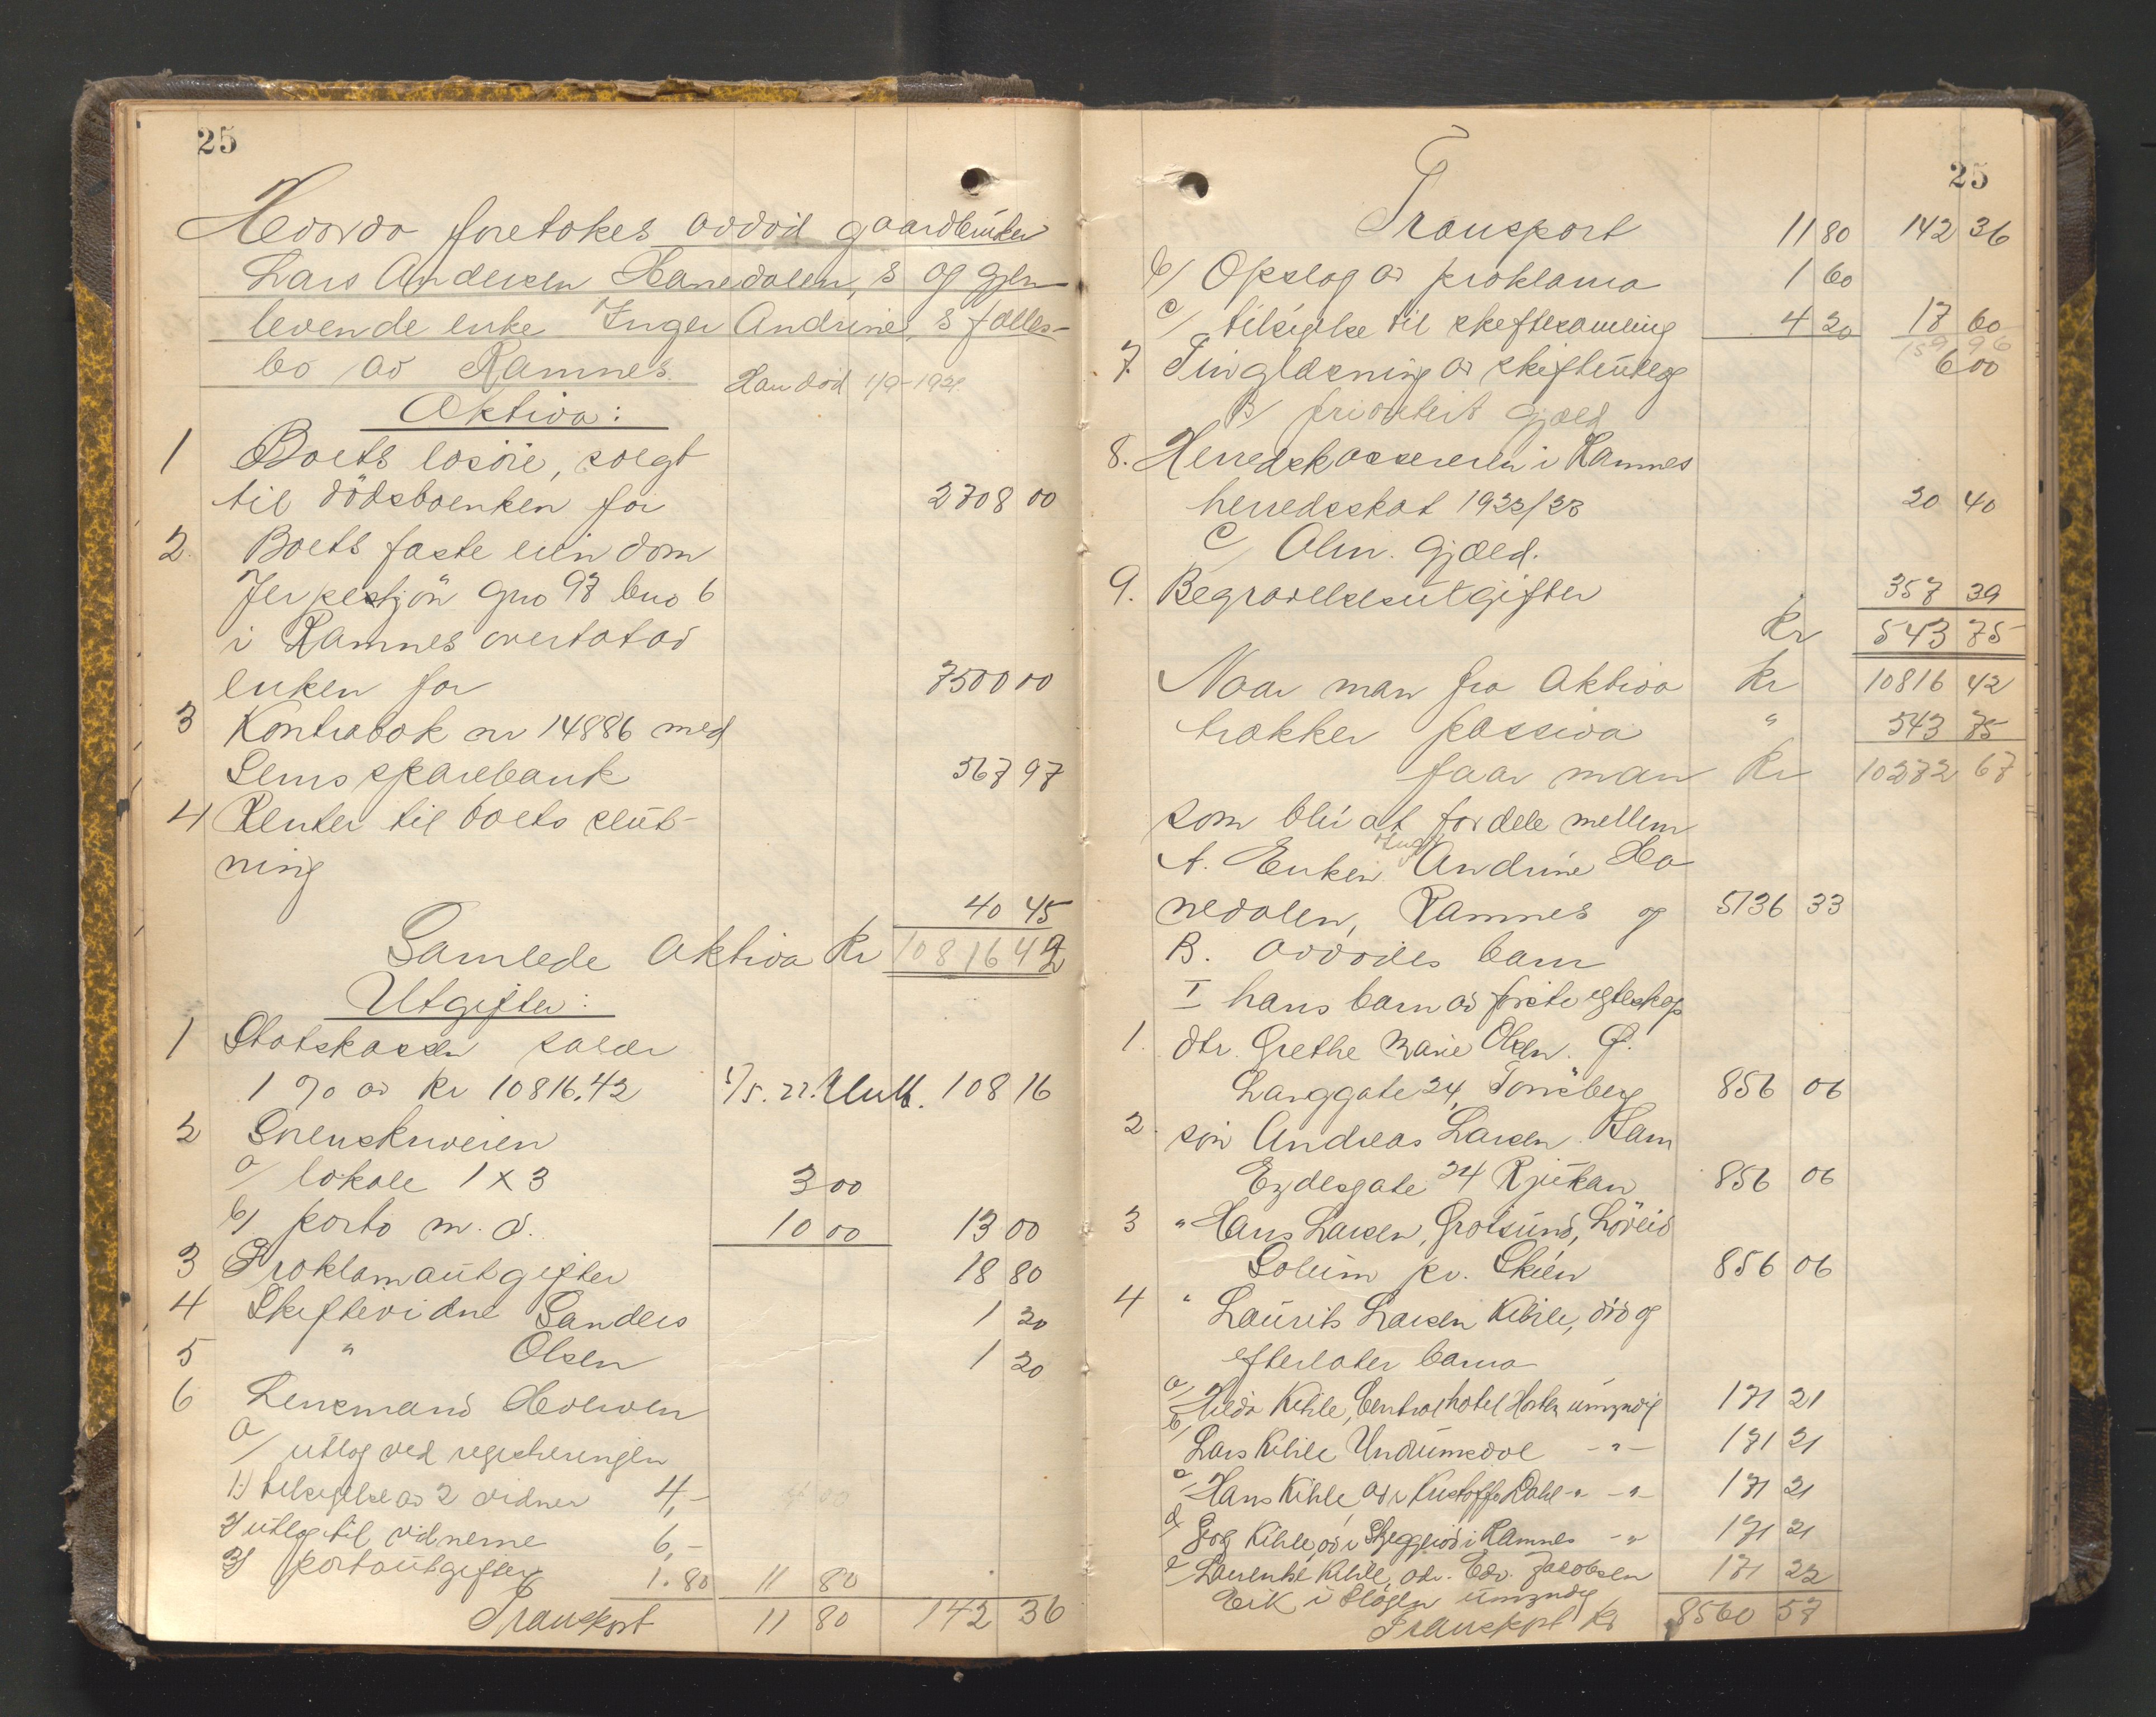 25
Hvorda foretokes avdød gaardbruker
Lars Andersen Hanedalen,s og gjen-
levende enke Inger Andrine,s fælles-
bo av Ramnes. Han død 1/9-1921
Aktiva:
1 Boets løsøre, solgt
til dödsboenken for 2708 00
2. Boets faste eiendom
Jerpestjön gno 97 bno 6
i Ramnes overtat av
enken for 7500 00
3 Kontrabok nr 14886 med
Sems sparebank 567 97
4 Renter til boets slut-
ning
40 45
Samlede Aktiva Kr 10816 42
Utgifter:
1 Statskassen salær
1 % av Kr 10816.42 1/5.22. 108 16
2 Sorenskriveren
a/ lokale 1 x 3 3 00
b/ porto m. v. 10 00 13 00
3 Proklamautgifter 18 80
4 Skiftevidne Sanders 1 20
5 " Olsen 1 20
6 Lensmand
a/ utlæg ved registreringen
1) tilsigelse av 2 vidner 4,-
2/ utlæg til vidnerne 6,-
3/ portoutgifter 1.80 11 80
Transport 11 80 142 36
25
Transport 11 80 142 36
b/ Opslag av proklama 1 60
c/ tilsigelse til skiftesamling 4 20 17 60
159 96
7. Tinglæsning av skifteutlæg 6 00
B/ prioritert gjæld
8. Herredskassereren i Ramnes
herredsskat 1922/23 20 40
C/ Alm. Gjæld.
9. Begravelsesutgifter 357 39
Kr 543 75
Naar man fra Aktiva Kr 10816 42
trækker passiva " 543 75
faar man Kr 10272 67
som blir at fordele mellem
A. Enken Inger Andrine Ha
nedalen, Ramnes og 5136 33
B. avdødes barn
I hans barn av første egteskap
1. dtr. Grethe Marie Olsen. Ø.
Langgate 24, Tønsberg 856 06
2. søn Andreas Larsen. Sam
Eydesgate 24 Rjukan 856 06
3 " Hans Larsen, Grotsund, Löveid
Solum pr. Skien 856 06
4 " Laurits Larsen Kihle, død og
efterlater barna
a/ Hilda Kihle, Centralhotel Horten umyndig 171 21
b/ Lars Kihle Undrumsdal -"- 171 21
c/ Hans Kihle, adr Kristoffer Dahl " -"- 171 21
d/ Kihle, adr i i Ramnes -" 171 21
e/ Laurentse Kihle, adr. Edv. Jacobsen 171 22
Eik i Slagen umyndig
Transport Kr 8560 57